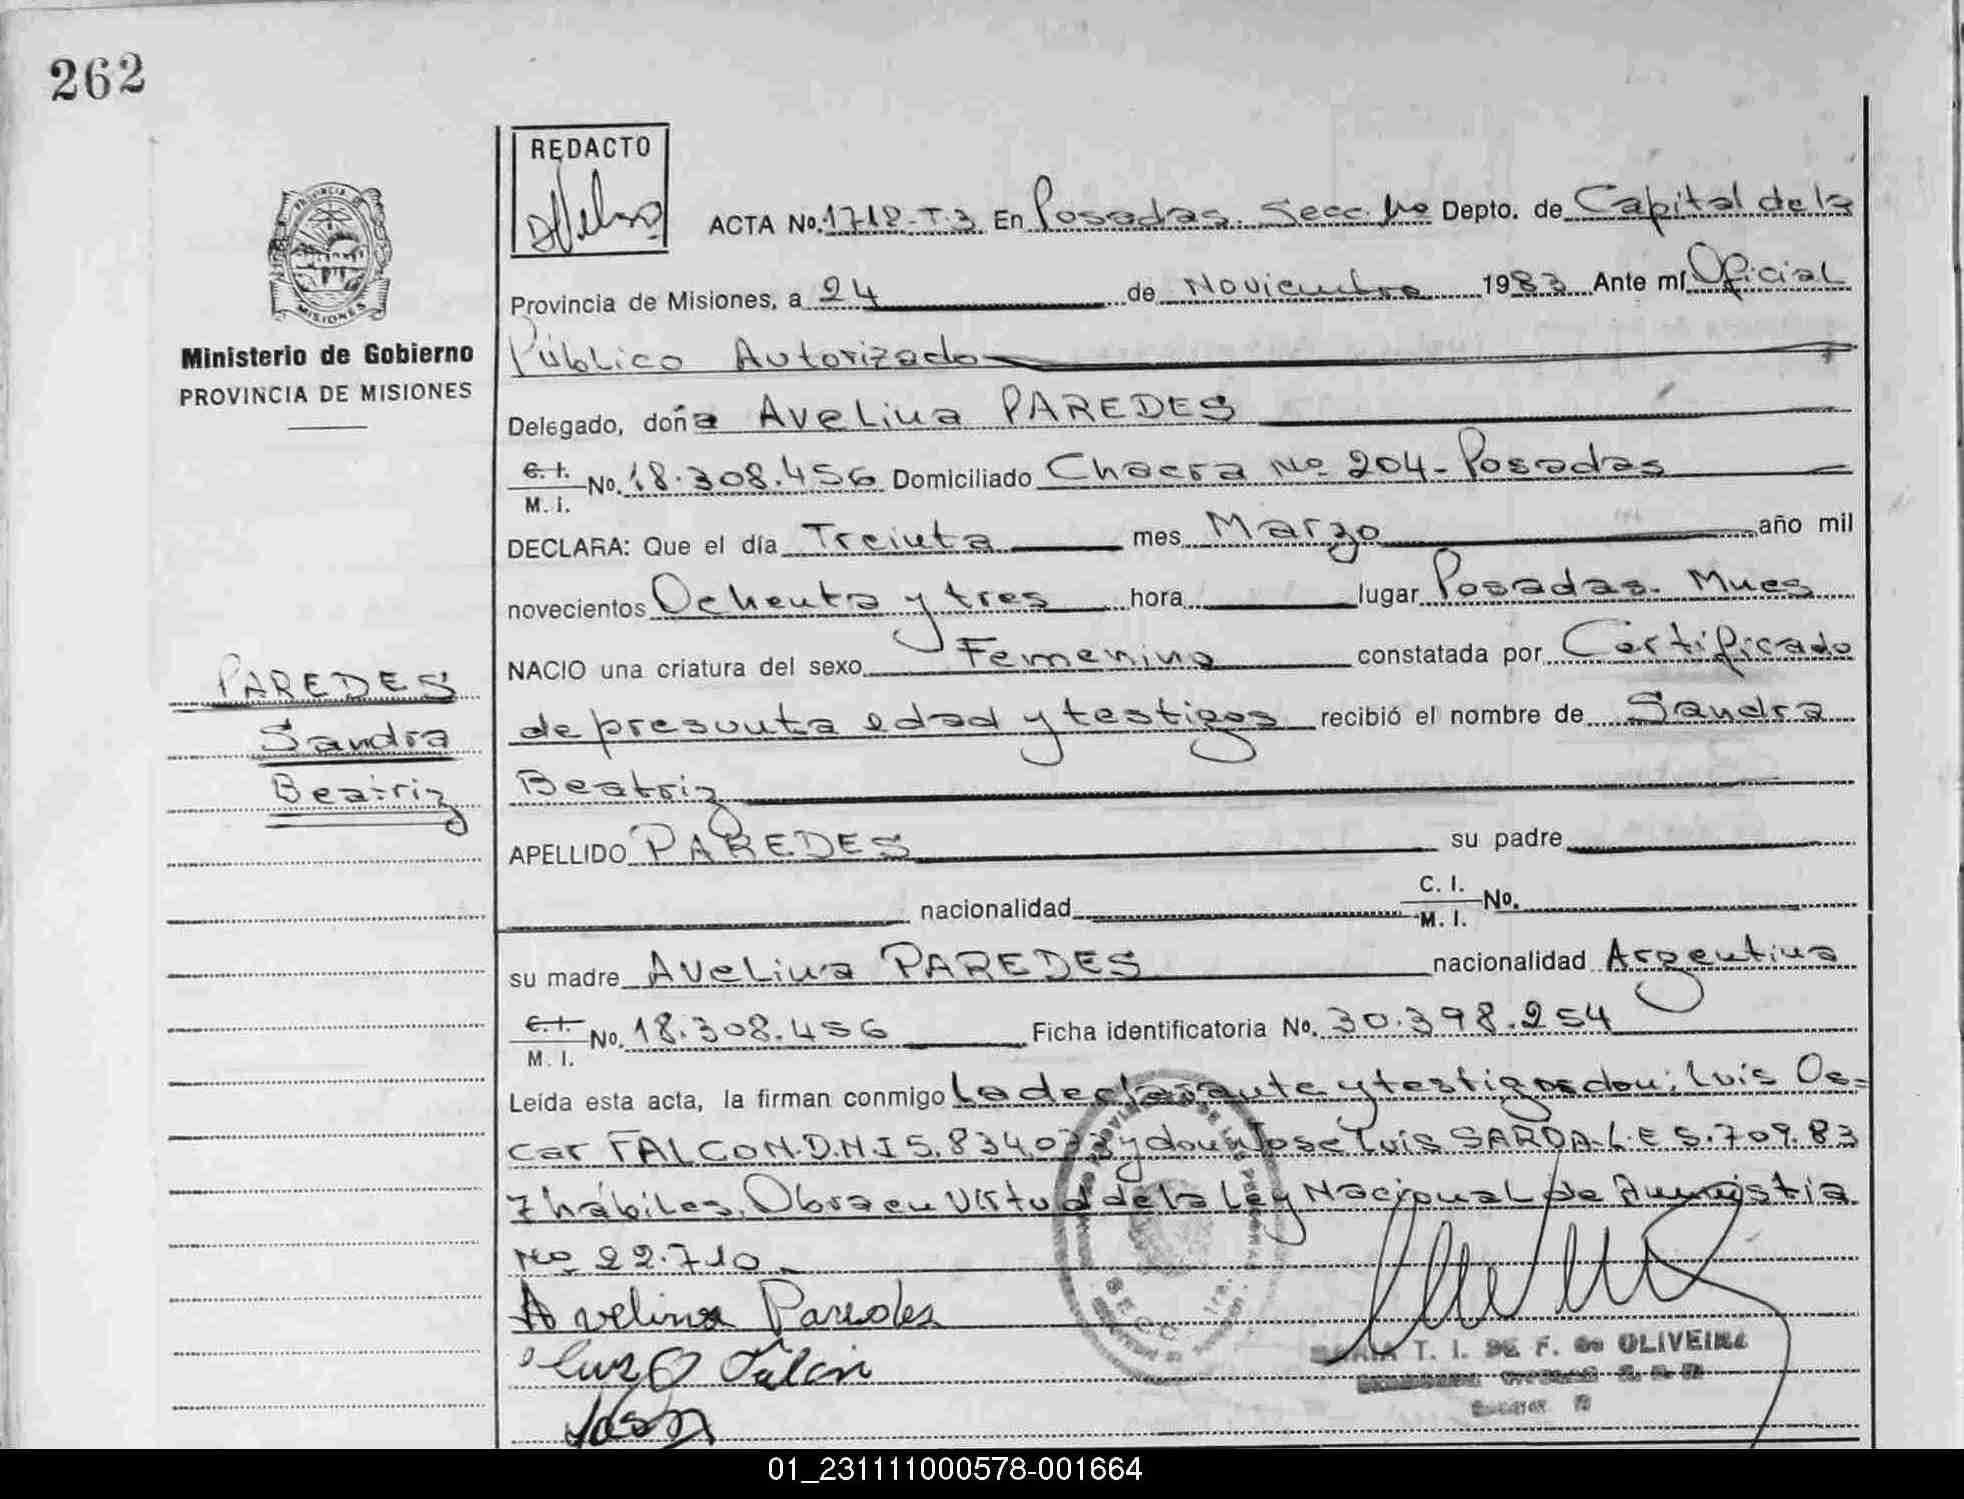 262
REDACTO
ACTA No. 1718-T.3 En Posadas. Secc. 1ro Depto. de Capital de la
Provincia de Misiones, a 24 de Noviembre 1983 Ante mí Oficial
Público Autorizado
Ministerio de Gobierno
PROVINCIA DE MISIONES
Delegado, doña Avelina PAREDES
C. I. M. I. No. 18.308.456 Domiciliado Chacra No 204- Posadas
DECLARA: Que el día Treinta mes Marzo año mil
novecientos Ochenta y tres hora lugar Posadas. Mnes
NACIO una criatura del sexo Femenino constatada por Certificado
de presunta edad y testigos recibió el nombre de Sandra
Beatriz
PAREDES
Sandra
Beatriz
APELLIDO PAREDES su padre
nacionalidad C. I. M. I. No.
su madre Avelina PAREDES nacionalidad Argentina
C. I. M. I. No. 18.308.456 Ficha identificatoria No. 30.398.254
Leída esta acta, la firman conmigo La declarante y testigos don: Luis Os=
car FALCON.D.N.I 5.834.033 y don Jose Luis SARDA-L.E 5.709.83
7 hábiles. Obra en virtud de la Ley Nacional de Amnistia
No 22.710.
Avelina Paredes
Luis O Falcon
MARIA T. I. DE F. de OLIVEIRA
01_231111000578-001664